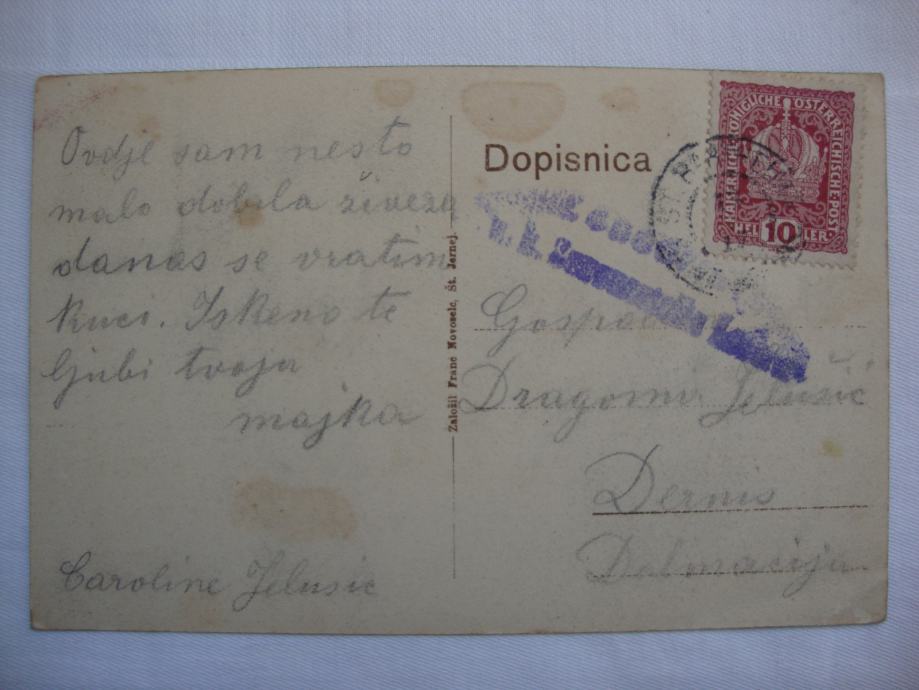 Ovdje sam nesto
malo dobila živeža
danas se vratim
kuci. Iskeno te
ljubi tvoja
majka
Caroline Jelusic
Založil Franc Novosele, Št. Jernej.
Dopisnica
KAISERLICHE KÖNIGLICHE ÖSTERREICHISCHE POST
HEL 10 LER
Dragomir Jelušić
Dernis
Dalmacija